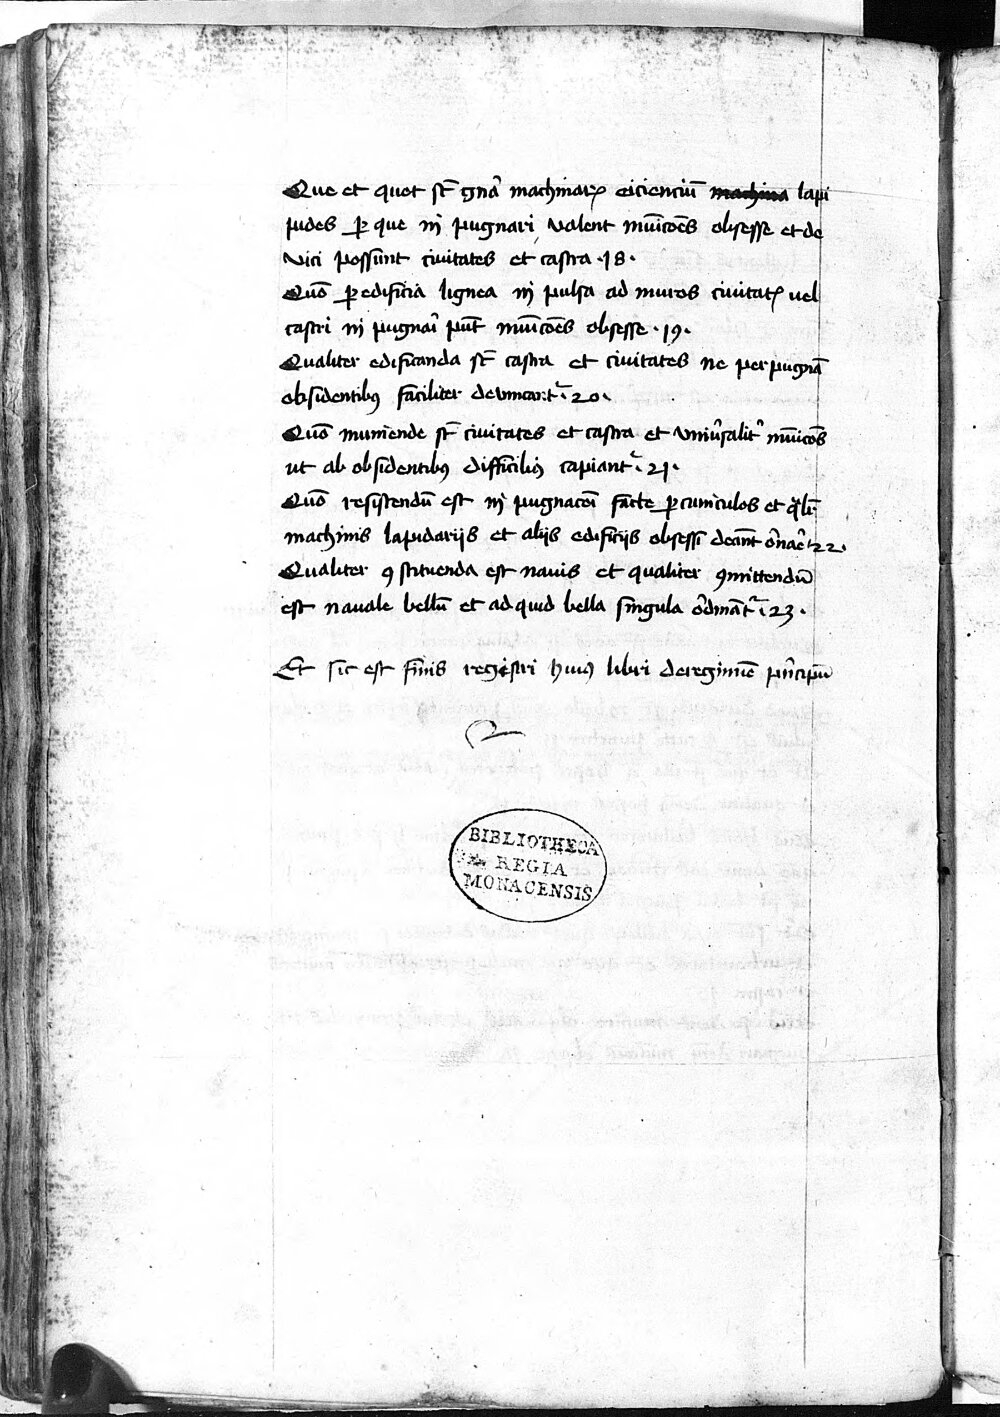 Que et quot st̄ gn̄a machinaꝝ eiicienciū machina lapi
pides ꝑ que inpugnari valent municōes obsesse et de
vici possunt ciuitates et castra ·18·
Quō ꝑ edificia lignea inpulsa ad muros ciuitatꝭ uel
castri inpugnari pn̄t municōes obsesse ·19·
Qualiter edificanda st̄ castra et ciuitates ne per pugnā
obsidentibꝰ faciliter deuincant᷑ ·20·
Quō muniende st̄ ciuitates et castra et uniu̓salit̓ municōes
ut ab obsidentibꝰ difficiliꝰ capiant᷑ ·21·
Quō resistendū est inpugnacōi facte ꝑ cuniculos et qͣlr̄
machinis lapidariis et aliis edificiis obsessi debeant 22·
Qualiter ꝯstituenda est nauis et qualiter ꝯmittendū
est nauale bellū et ad quid bella singula ordinant᷑ ·23·
Et sic est finis registri huiꝰ libri de regimine principū
BIBLIOTHECA
REGIA
MONACENSIS